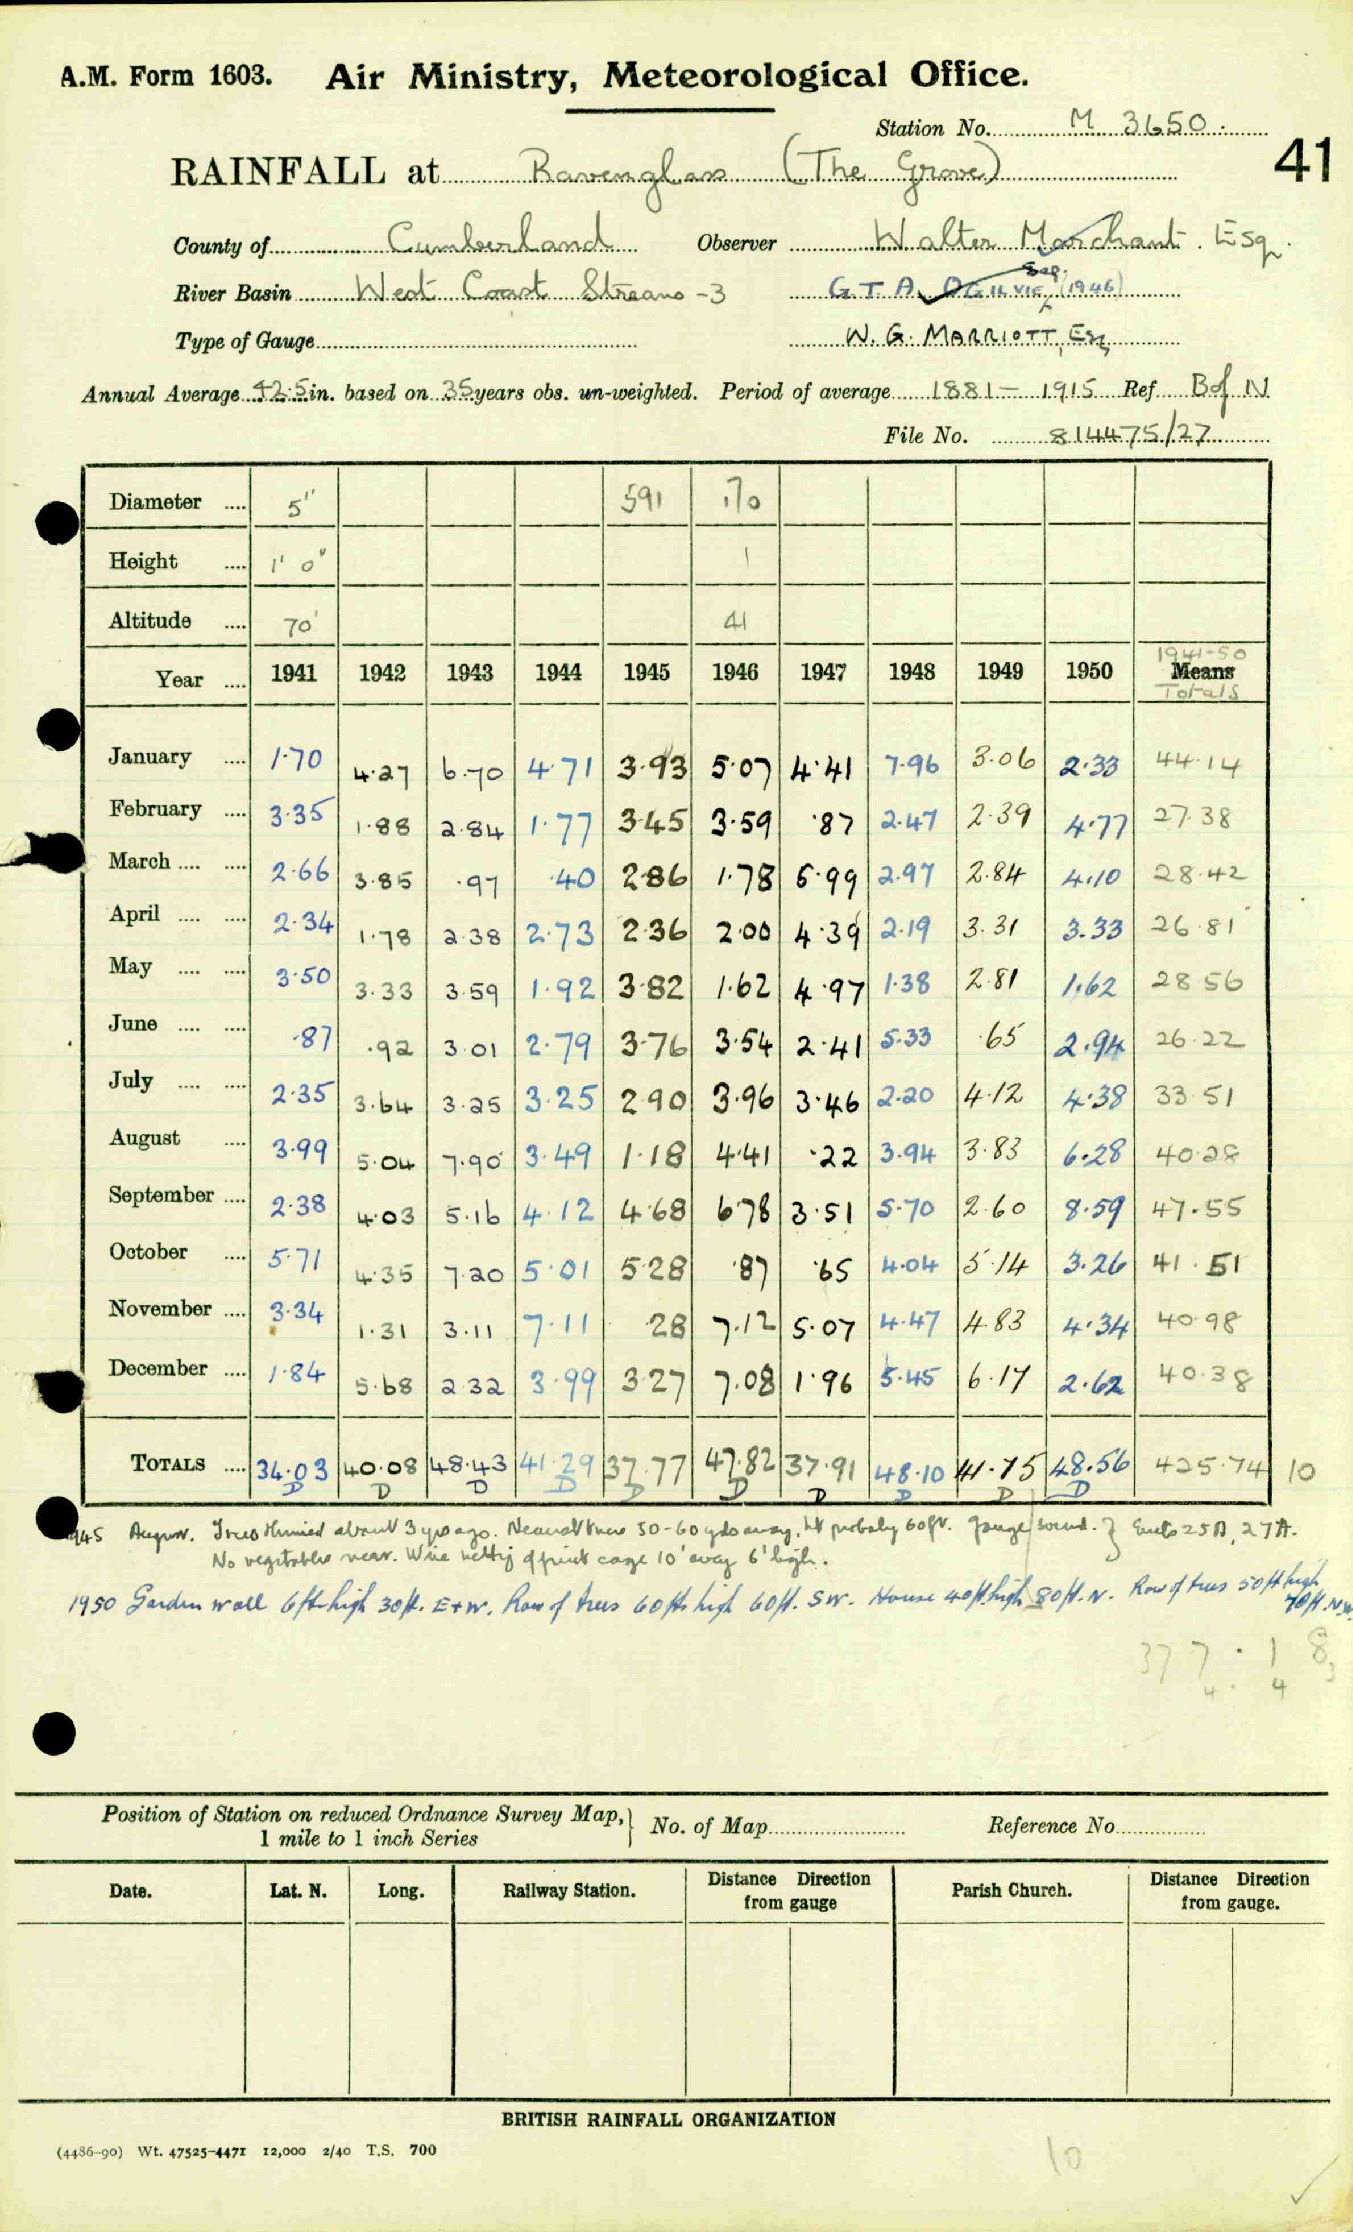 A.M. Form 1603. Air Ministry, Meteorological Office.
Station No. M 3650.
41
RAINFALL at Ravenglass (The Grove)
County of Cumberland Observer Walter Marchant. Esq.
River Basin West Coast Streams -3 G.T.A. OGILVIE, Esq. (1946)
Type of Gauge W. G. MARRIOTT, Esq
Annual Average 42.5 in. based on 35 years obs. un-weighted. Period of average 1881 – 1915 Ref B of N
File No. 814475/27
Diameter .... 5" 591 170
Height .... 1' 0" 1
Altitude .... 70' 41
Year .... 1941 1942 1943 1944 1945 1946 1947 1948 1949 1950 1941-50 Means Totals
January .... 1.70 4.27 6.70 4.71 3.93 5.07 4.41 7.96 3.06 2.33 44.14
February .... 3.35 1.88 2.84 1.77 3.45 3.59 .87 2.47 2.39 4.77 27.38
March .... .... 2.66 3.85 .97 .40 2.86 1.78 5.99 2.97 2.84 4.10 28.42
April .... .... 2.34 1.78 2.38 2.73 2.36 2.00 4.39 2.19 3.31 3.33 26.81
May .... .... 3.50 3.33 3.59 1.92 3.82 1.62 4.97 1.38 2.81 1.62 28.56
June .... .... .87 .92 3.01 2.79 3.76 3.54 2.41 5.33 .65 2.94 26.22
July .... .... 2.35 3.64 3.25 3.25 2.90 3.96 3.46 2.20 4.12 4.38 33.51
August .... 3.99 5.04 7.90 3.49 1.18 4.41 .22 3.94 3.83 6.28 40.28
September .... 2.38 4.03 5.16 4.12 4.68 6.78 3.51 5.70 2.60 8.59 47.55
October .... 5.71 4.35 7.20 5.01 5.28 .87 .65 4.04 5.14 3.26 41.51
November .... 3.34 1.31 3.11 7.11 .28 7.12 5.07 4.47 4.83 4.34 40.98
December .... 1.84 5.68 2.32 3.99 3.27 7.08 1.96 5.45 6.17 2.62 40.38
TOTALS .... 34.03 40.08 48.43 41.29 37.77 47.82 37.91 48.10 41.75 48.56 425.74 10
D D D D D D D D D D
1945 August. Trees thinned about 3 yrs ago. Nearest trees 50-60 yds away, ht probably 60 ft. Gauge sound. } 25 A, 27 A.
No vegetables near. Wire netting of fruit cage 10' away 6' high.
1950 Garden wall 6ft high 30ft. E+W. Row of trees 60ft high 60ft. SW. House 40ft high 80ft. N. Row of trees 50ft high
70ft. NW.
377.18
4.43
Position of Station on reduced Ordnance Survey Map, } No. of Map Reference No.
1 mile to 1 inch Series
Date. Lat. N. Long. Railway Station. Distance Direction from gauge Parish Church. Distance Direction from gauge.
BRITISH RAINFALL ORGANIZATION
(4486–90) Wt. 47525–4471 12,000 2/40 T.S. 700
10